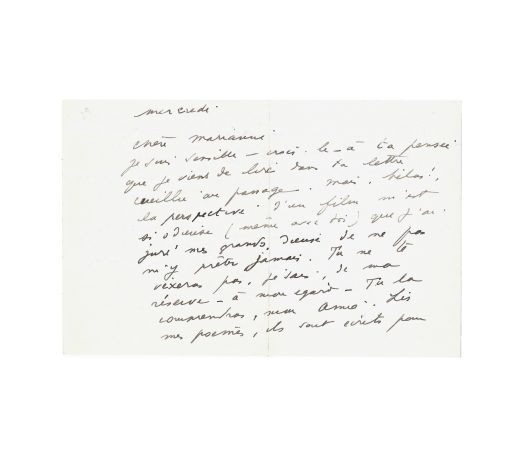 mercredi
chère Marianne
je suis sensible – crois-le – à ta pensée
que je viens de lire dans ta lettre
cueillie au passage. mais, hélas!,
la perspective d'un film m'est
si odieuse (même avec toi) que j'ai
juré mes grands dieux de ne pas
m'y prêter jamais. Tu ne te
vexeras pas, je sais, de ma
réserve – à mon égard – Tu la
comprendras, mon amie. Lis
mes poèmes, ils sont écrits pour